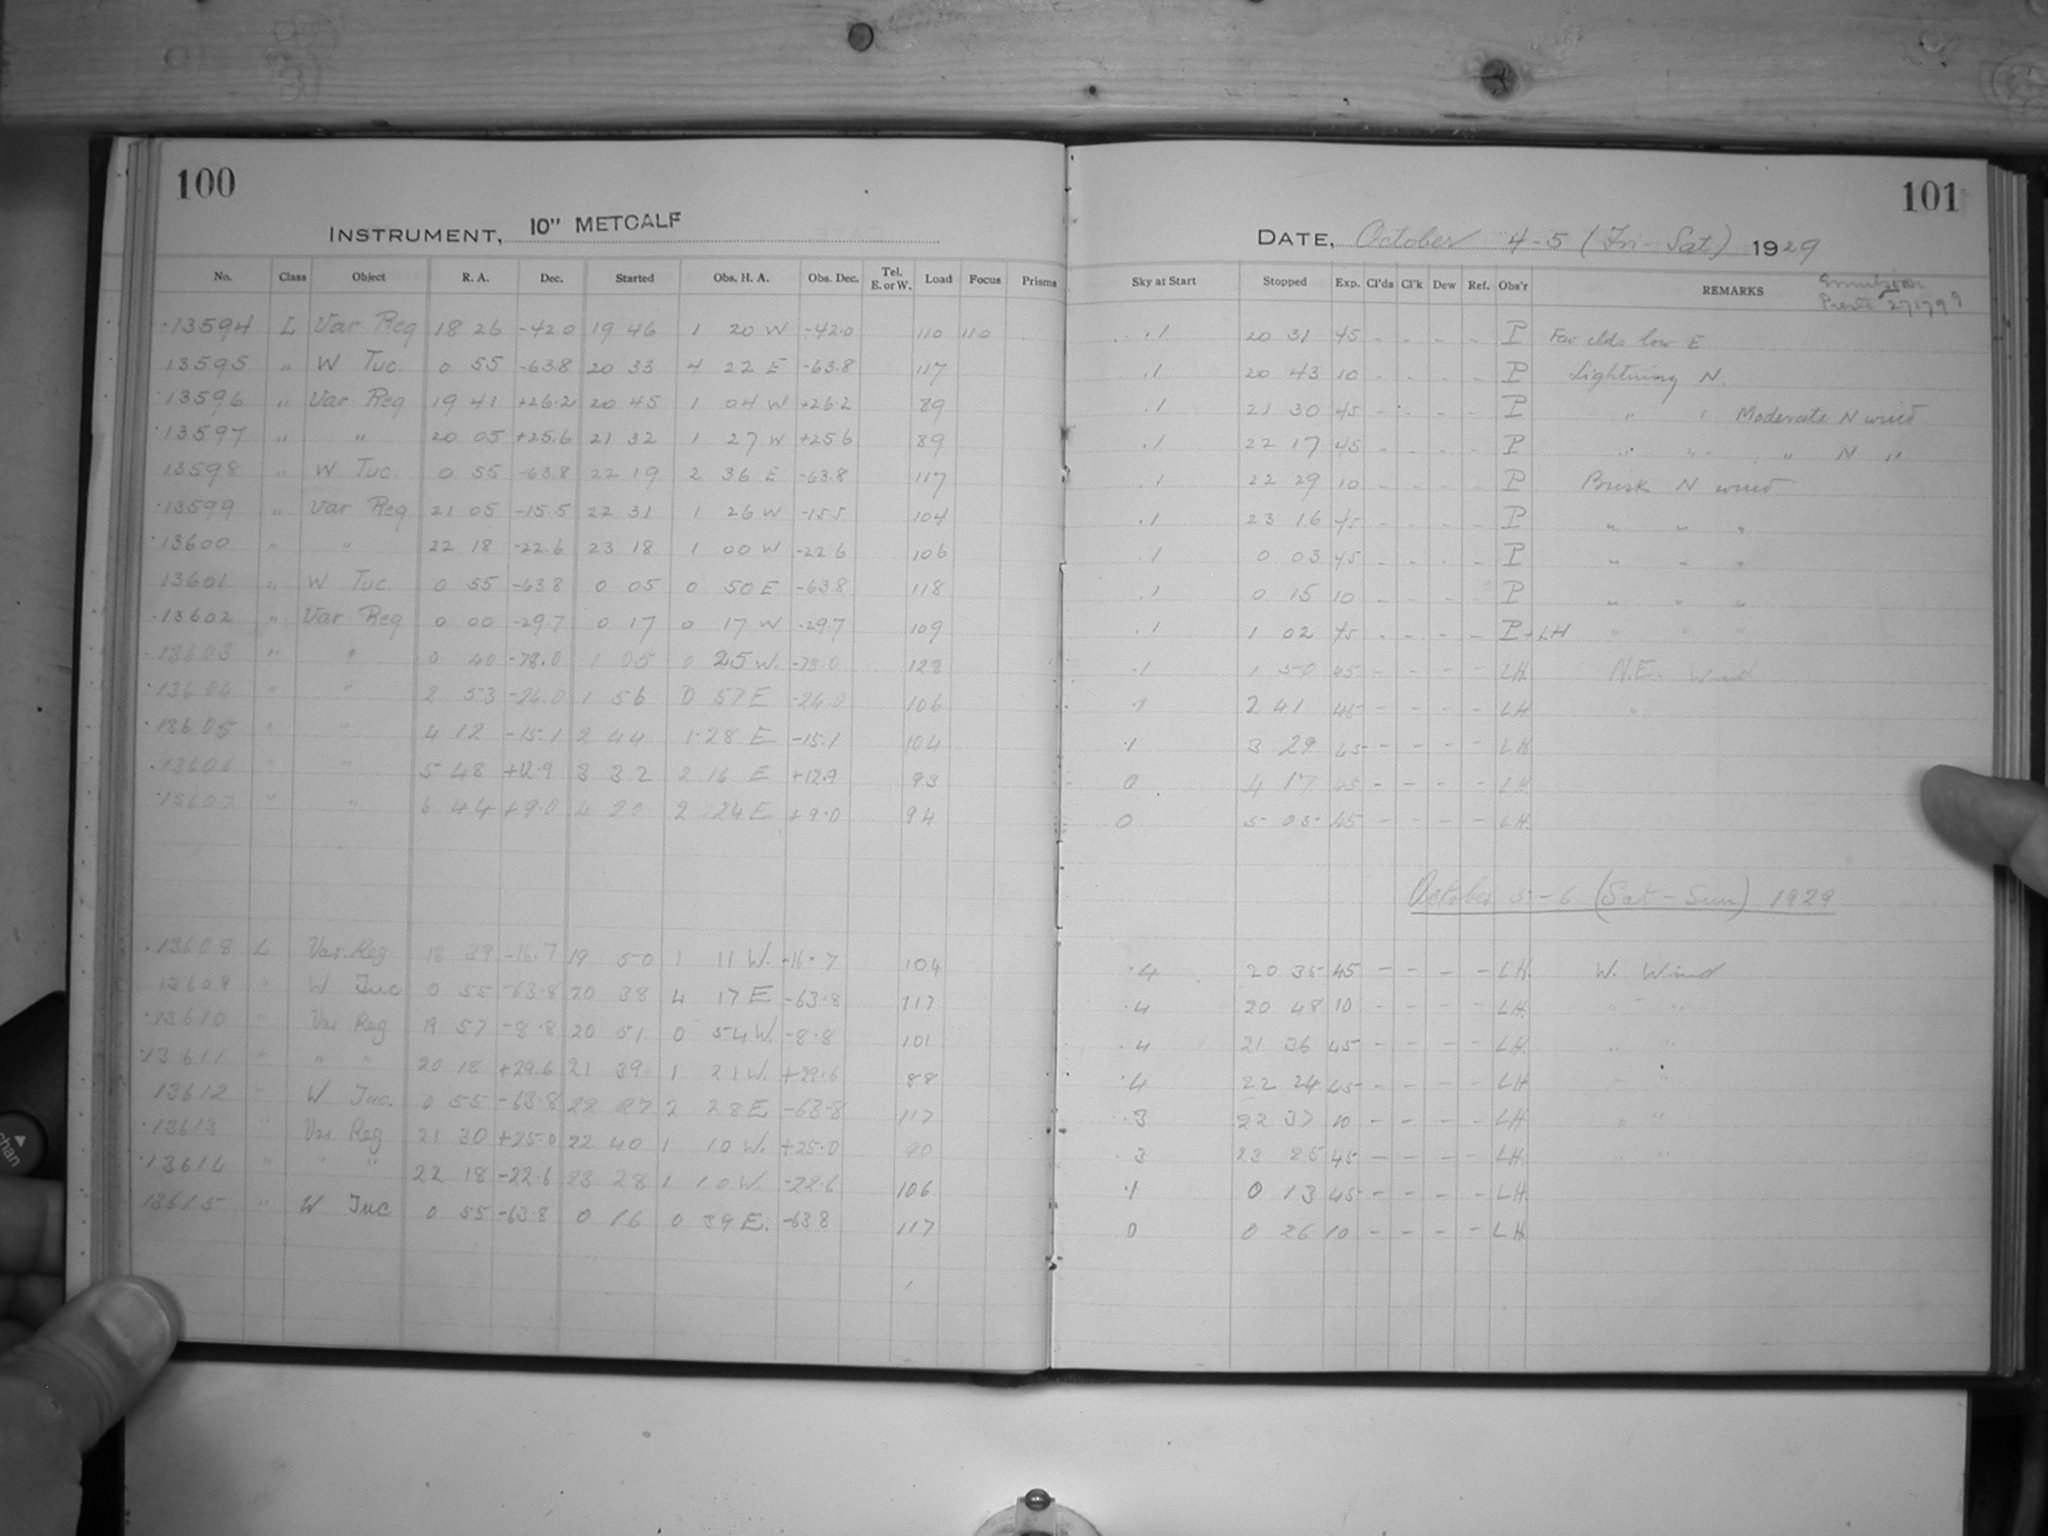 100
INSTRUMENT, 10" METCALF
No. Class Object R. A. Dec. Started Obs. H. A. Obs. Dec. Tel. E. or W. Load Focus Prisms
13594 L Var Reg 18 26 -42.0 19 46 1 20 W -42.0 110 110
13595 " W Tuc. 0 55 -63.8 20 33 4 22 E -63.8 117
13596 " Var Reg 19 41 +26.2 20 45 1 04 W +26.2 89
13597 " " 20 05 +25.6 21 32 1 27 W +25.6 89
13598 " W Tuc. 0 55 -63.8 22 19 2 36 E -63.8 117
13599 " Var Reg 21 05 -15.5 22 31 1 26 W -15.5 104
13600 " " 22 18 -22.6 23 18 1 00 W -22.6 106
13601 " W Tuc 0 55 -63.8 0 05 0 50 E -63.8 118
13602 " Var Reg 0 00 -29.7 0 17 0 17 W -29.7 109
13603 " " 0 40 -78.0 1 05 0 25 W. -78.0 123
13604 " " 2 53 -24.0 1 56 0 57 E -24.0 106
13605 " " 4 12 -15.1 2 44 1 28 E -15.1 104
13606 " " 5 48 +12.9 3 32 2 16 E +12.9 93
13607 " " 6 44 +9.0 4 20 2 24 E +9.0 94
13608 L Var. Reg. 18 39 -16.7 19 50 1 11 W. -16.7 104
13609 " W Tuc 0 55 -63.8 20 38 4 17 E -63.8 117
13610 " Var Reg 19 57 -8.8 20 51 0 54 W. -8.8 101
13611 " " " 20 18 +29.6 21 39 1 21 W. +29.6 88
13612 " W Tuc. 0 55 -63.8 22 27 2 28 E -63.8 117
13613 " Var Reg 21 30 +25.0 22 40 1 10 W. +25.0 90
13614 " " " 22 18 -22.6 23 28 1 10 W. -22.6 106
13615 " W Tuc 0 55 -63.8 0 16 0 39 E. -63.8 117
101
DATE, October 4-5 (Fri - Sat) 1929
Sky at Start Stopped Exp. Cl'ds Cl'k Dew Ref. Obs'r REMARKS Emulsion
.1 20 31 45 - - - - P Few clds low E
.1 20 43 10 - - - - P Lightning N.
.1 21 30 45 - - - - P " " Moderate N wind
.1 22 17 45 - - - - P " " " N "
.1 22 29 10 - - - - P Brisk N wind
.1 23 16 45 - - - - P " " "
.1 0 03 45 - - - - P " " "
.1 0 15 10 - - - - P " " "
.1 1 02 45 - - - - P+LH " " "
.1 1 50 45 - - - - LH. N.E. Wind
.1 2 41 45 - - - - LH "
.1 3 29 45 - - - - LH
0 4 17 45 - - - - LH.
0 5 05 45 - - - - LH.
October 5-6 (Sat - Sun) 1929
.4 20 35 45 - - - - LH. W. Wind
.4 20 48 10 - - - - LH. " "
.4 21 36 45 - - - - LH. " "
.4 22 24 45 - - - - LH " "
.3 22 37 10 - - - - LH " "
.3 23 25 45 - - - - LH. " "
.1 0 13 45 - - - - LH.
0 0 26 10 - - - - LH.